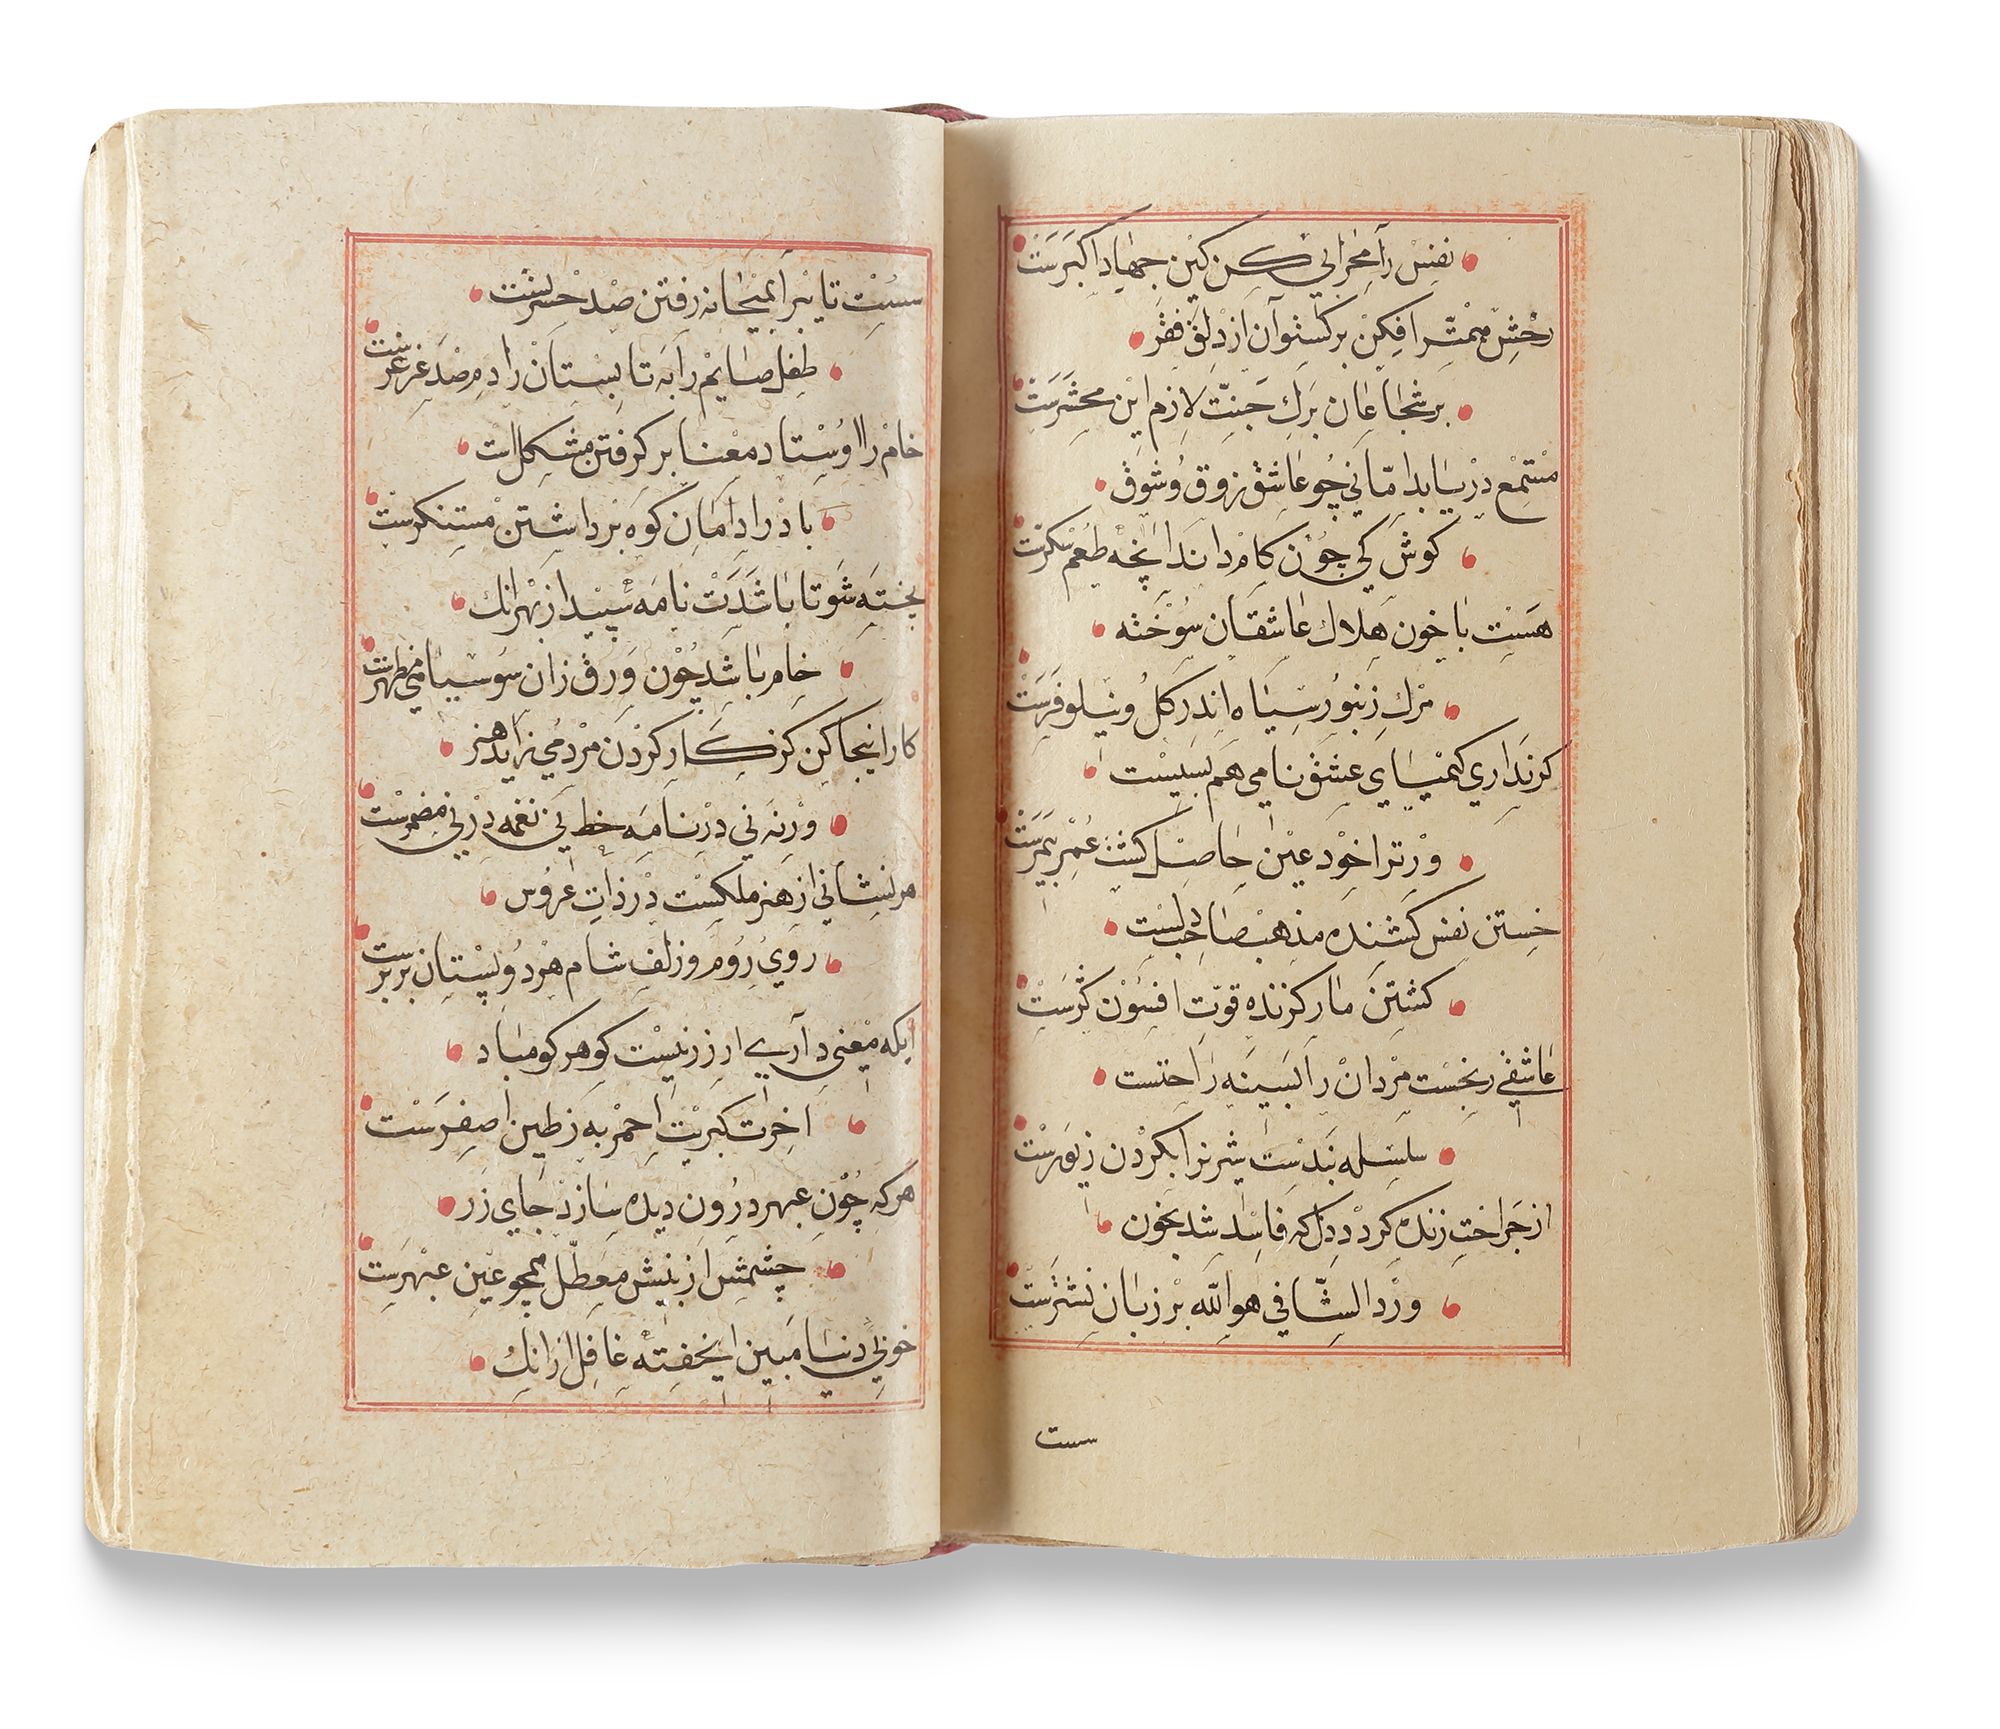 نفس را مجرا بي كن كين جهاد اكبرست
رخش همت را فكن بركستوان از دلق فقر
بر شجاعان برك جنت لازم اين محشرست
مستمع دريابد اماني چو عاشق ذوق و شوق
كوش كي چون كام داند انچه طعم شكرست
هست با خون هلاك عاشقان سوخته
مرك زنبور سياه اندر كل و نيلوفرست
كر نداري كيمياي عشق نامي هم بسيست
ور ترا خود عين حاصل كشت عمر بيمرست
خستن نفس كشنده مذهب صاحب دلست
كشتن مار كزنده قوت افسون كرست
عاشقي رنجست مردان را بسينه راحتست
سلسله بندست شير نر را بكردن زيورست
از جراحت زنده كردد دل كه فاسد شد بخون
ورد الشافي هو الله بر زبان نشترست
سست
سست تا بيرا بميخانه رفتن صد حسرتست
طفل صايم را به تابستان را دم صد غرغرست
خام را اوستاد معنا بر كرفتن مشكل است
باد را دامان كوه برداشتن مستنكرست
پخته شو تا باشدت نامه سپيد از بهر انك
خام باشد چون ورق زان سو سيا مي مظهرست
كار اينجا كن كز كار كردن مرد مي زايد هنر
ورنه ني در نامه خط ني نغمه در ني مضمرست
هر نشاني از هنر ملكست در ذات عروس
روي روم و زلف شام هر دو پستان بربرست
ايكه معني داري ار زر نيست كوهر كو مباد
اخرت كبريت احمر به ز طين اصفرست
هر كه چون عبهر درون ديده سازد جاي زر
چشمش از بينش معطل همچو عين عبهرست
خوبي دنيا مبين ايخفته غافل ازانك